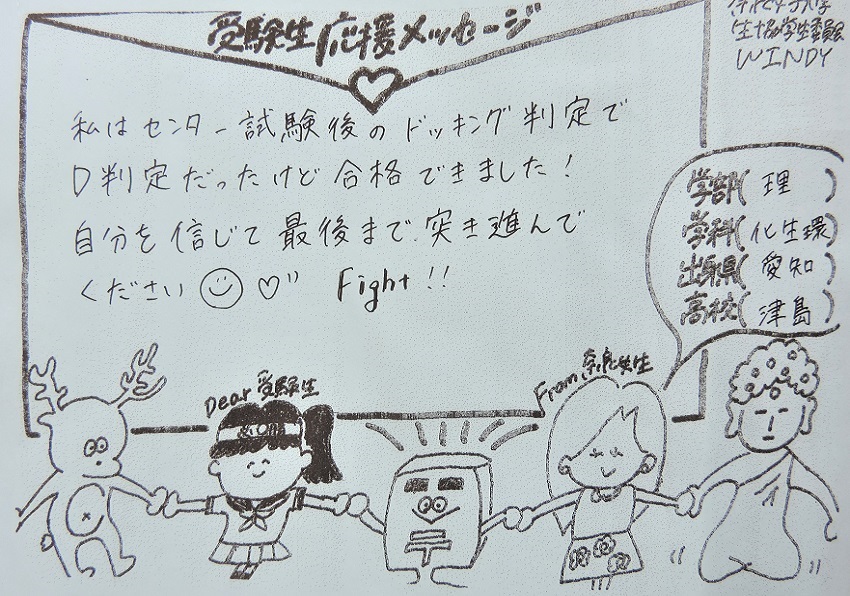 受験生応援メッセージ
生協学生委員会
WINDY
私はセンター試験後のドッキング判定で
D判定だったけど合格できました!
自分を信じて最後まで突き進んで
ください Fight!!
学部( 理 )
学科( 化生環 )
出身県( 愛知 )
高校( 津島 )
Dear 受験生
From 奈良女生